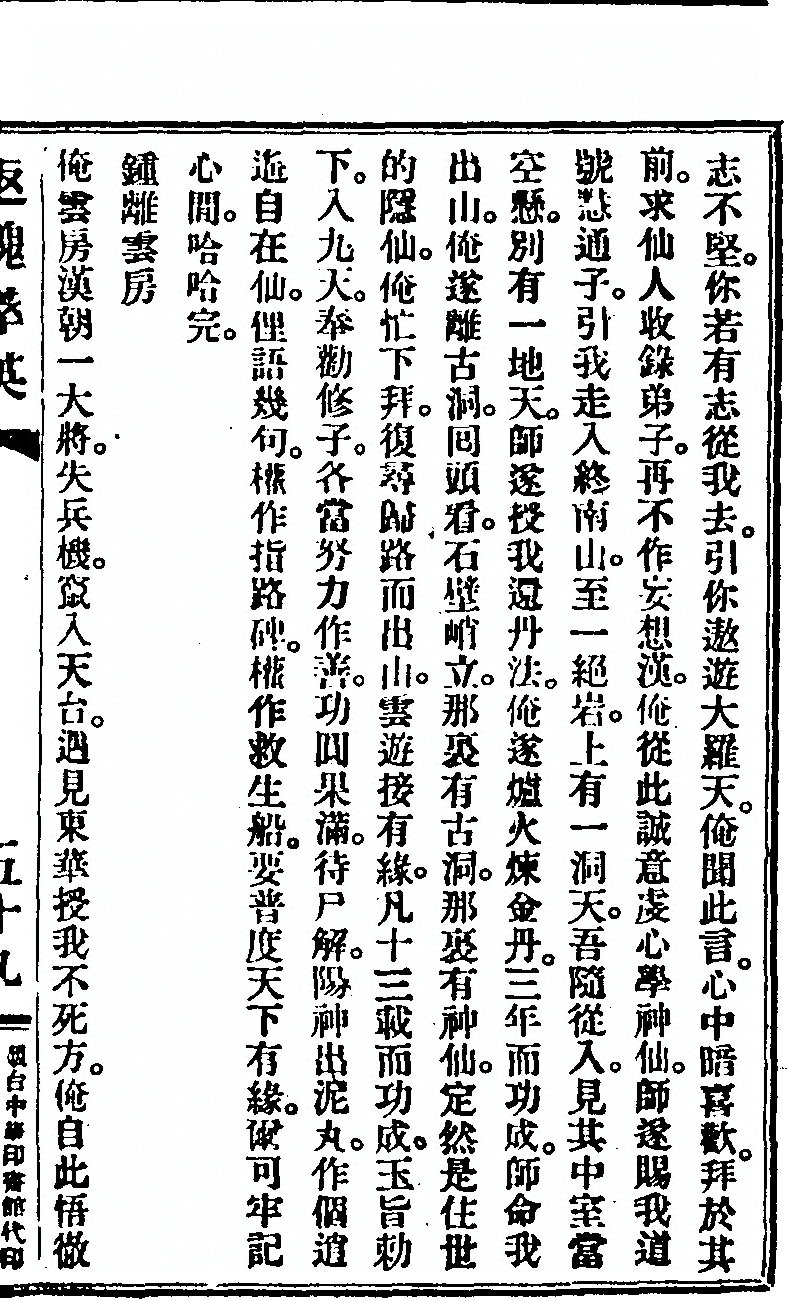 志不堅。你若有志從我去。引你遨遊大羅天。俺聞此言。心中暗喜歡。拜於其
前。求仙人收錄弟子。再不作妄想漢。俺從此誠意虔心學神仙。師遂賜我道
號慧通子。引我走入終南山。至一絕岩。上有一洞天。吾隨從入。見其中室當
空懸。別有一地天。師遂授我還丹法。俺遂爐火煉金丹。三年而功成。師命我
出山。俺遂離古洞。囘頭看。石壁峭立。那裏有古洞。那裏有神仙。定然是住世
的隱仙。俺忙下拜。復尋歸路而出山。雲遊接有緣。凡十三載而功成。玉旨勅
下。入九天。奉勸修子。各當努力作善。功圓果滿。待尸解。陽神出泥丸。作個逍
遙自在仙。俚語幾句。權作指路碑。權作救生船。要普度天下有緣。爾可牢記
心間。哈哈完。
鍾離雲房
俺雲房漢朝一大將。失兵機。竄入天台。遇見東華授我不死方。俺自此悟徹
返魂萃英
五十九
烟台中華印書館代印